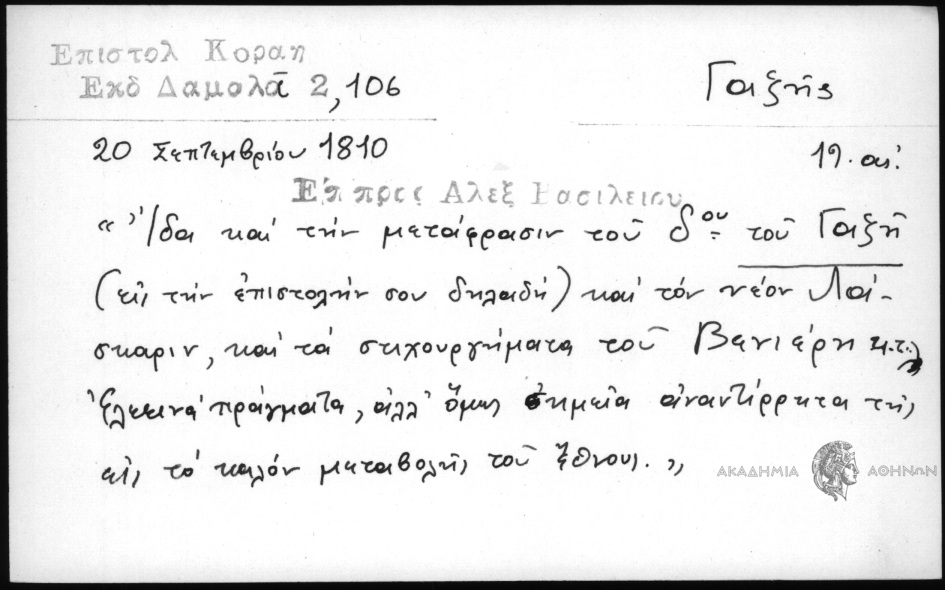 Επιστολ Κοραη
Εκδ Δαμαλᾶ 2,106
Γαζῆς
20 Σεπτεμβρίου 1810
19. αἰ.
Επ προς Αλεξ Βασιλειου
“Ἴδα καὶ τὴν μετάφρασιν τοῦ δ.ου τοῦ Γαζῆ
(εἰς τὴν ἐπιστολήν σου δηλαδή) καὶ τὸν νέον Λά-
σκαριν, καὶ τὰ στιχουργήματα τοῦ Βενιέρη κ.τ.λ
Ἐλεεινὰ πράγματα, ἀλλ' ὅμως σημεῖα ἀναντίρρητα τῆς
εἰς τὸ καλὸν μεταβολῆς τοῦ ἔθνους.„
ΑΚΑΔΗΜΙΑ ΑΘΗΝΩΝ